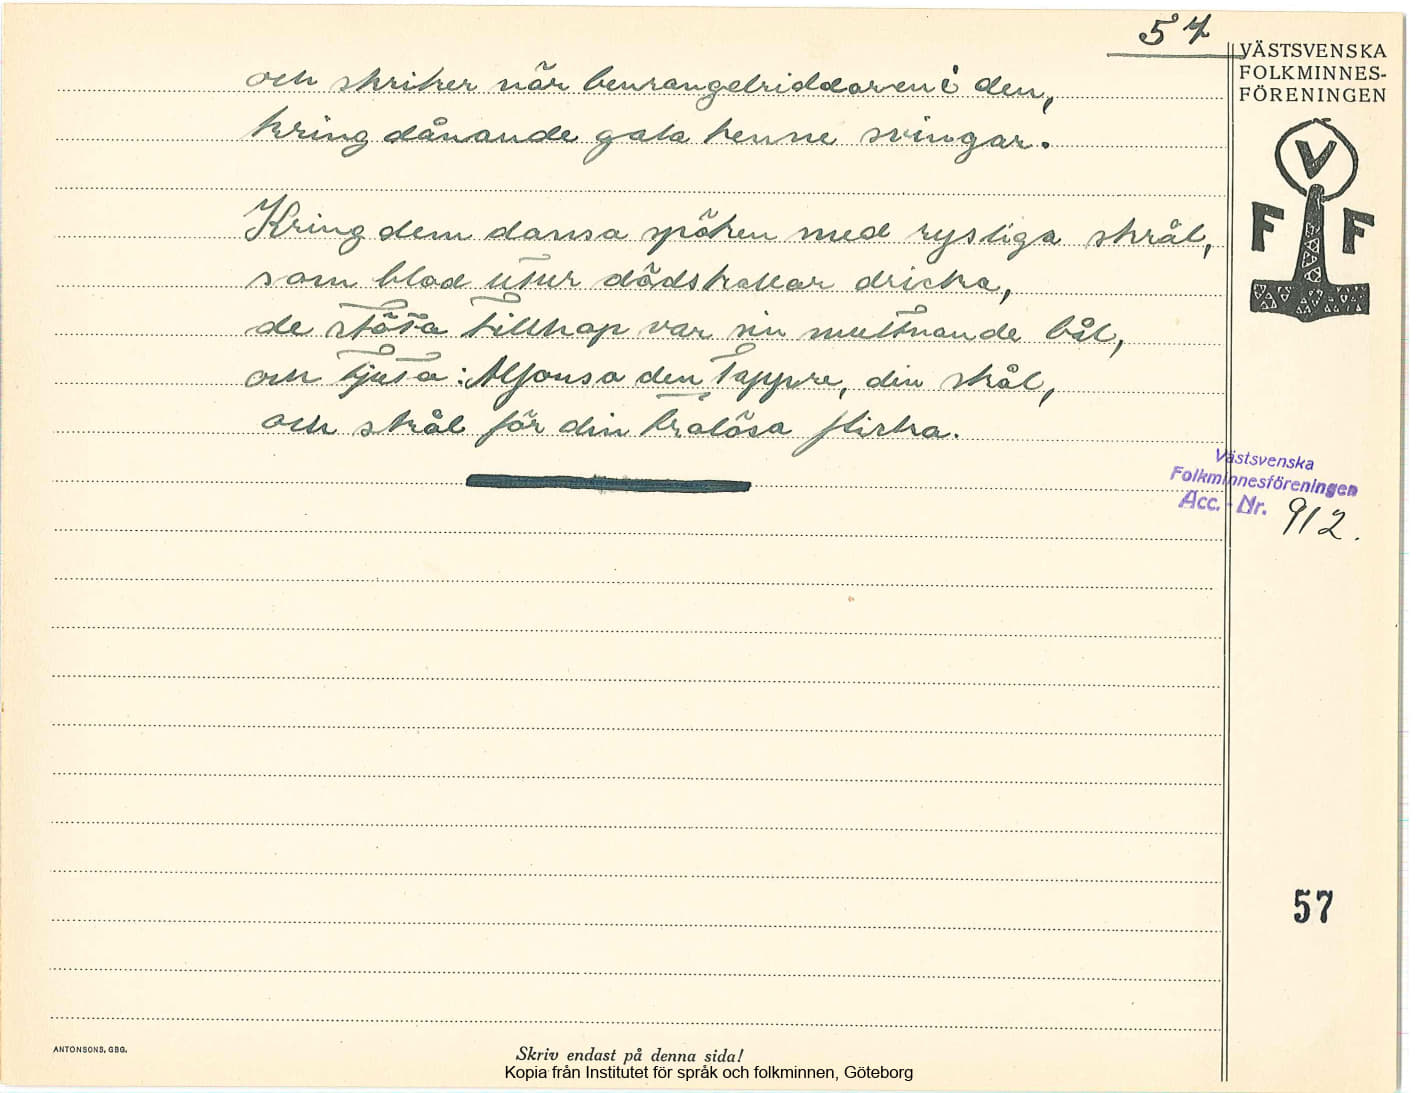 57
VÄSTSVENSKA
FOLKMINNES-
FÖRENINGEN
och skriker när benrangelriddaren i den,
kring dånande gala henne svingar.
V
F F
Kring dem dansa spöken med rysliga skrål,
som blod utur dödskallar dricka,
de stöta tillhap var sin multnande bål,
och tjuta: Alfonso den tappre, din skål,
och skål för din trolösa flicka.
Västsvenska
Folkminnesföreningen
Acc. - Nr. 912.
57
ANTONSONS, GBG.
Skriv endast på denna sida!
Kopia från Institutet för språk och folkminnen, Göteborg